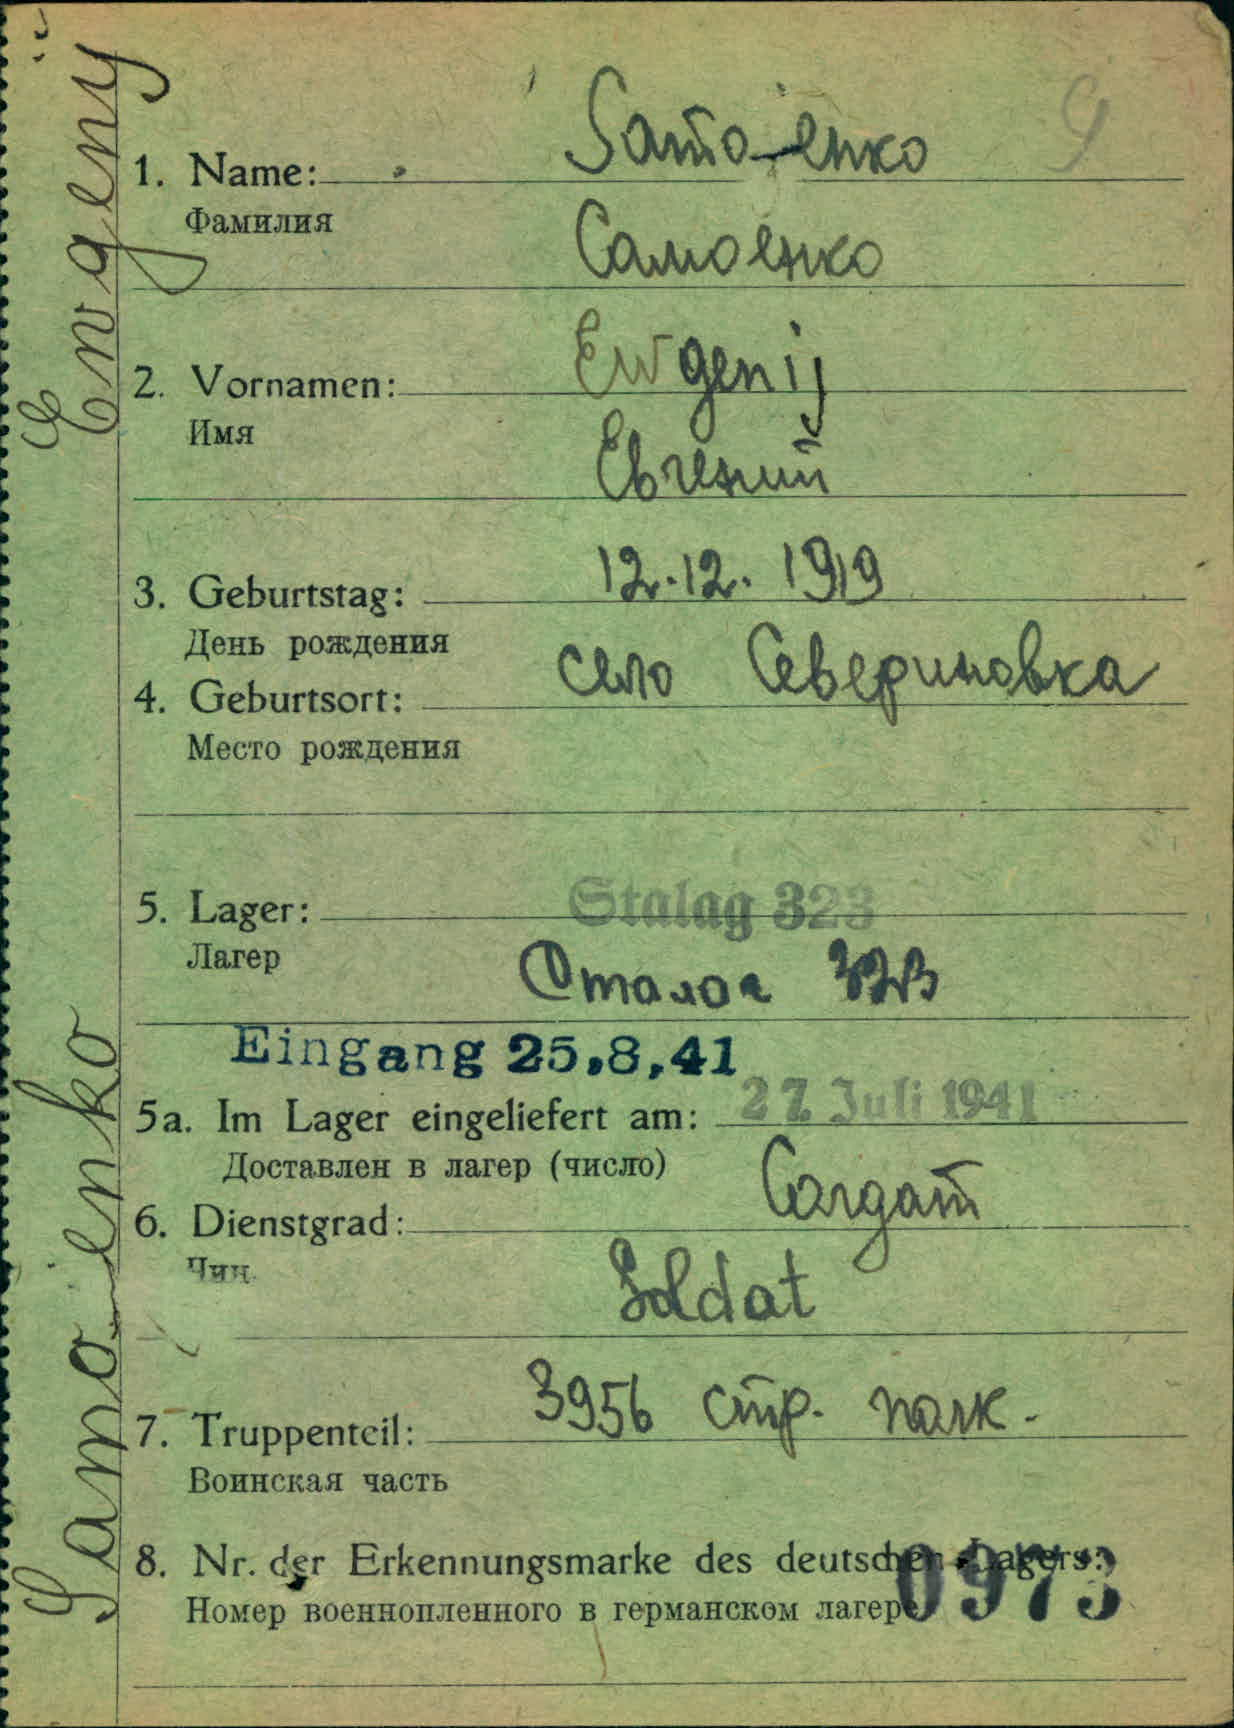 Samo-jenko
1. Name:
Фамилия
Самоенко
Ewgenij
2. Vornamen:
Имя
Евгений
12.12. 1919
3. Geburtstag:
День рождения
село Севериновка
4. Geburtsort:
Место рождения
5. Lager: Stalag 323
Лагер
Сталаг 323
Eingang 25.8.41
5a. Im Lager eingeliefert am: 27. Juli 1941
Доставлен в лагер (число)
Солдат
6. Dienstgrad:
Чин
Soldat
3956 стр. полк.
7. Truppenteil:
Воинская часть
8. Nr. der Erkennungsmarke des deutschen Lagers: 0973
Номер военнопленного в германском лагере
Samojenko Ewgenij